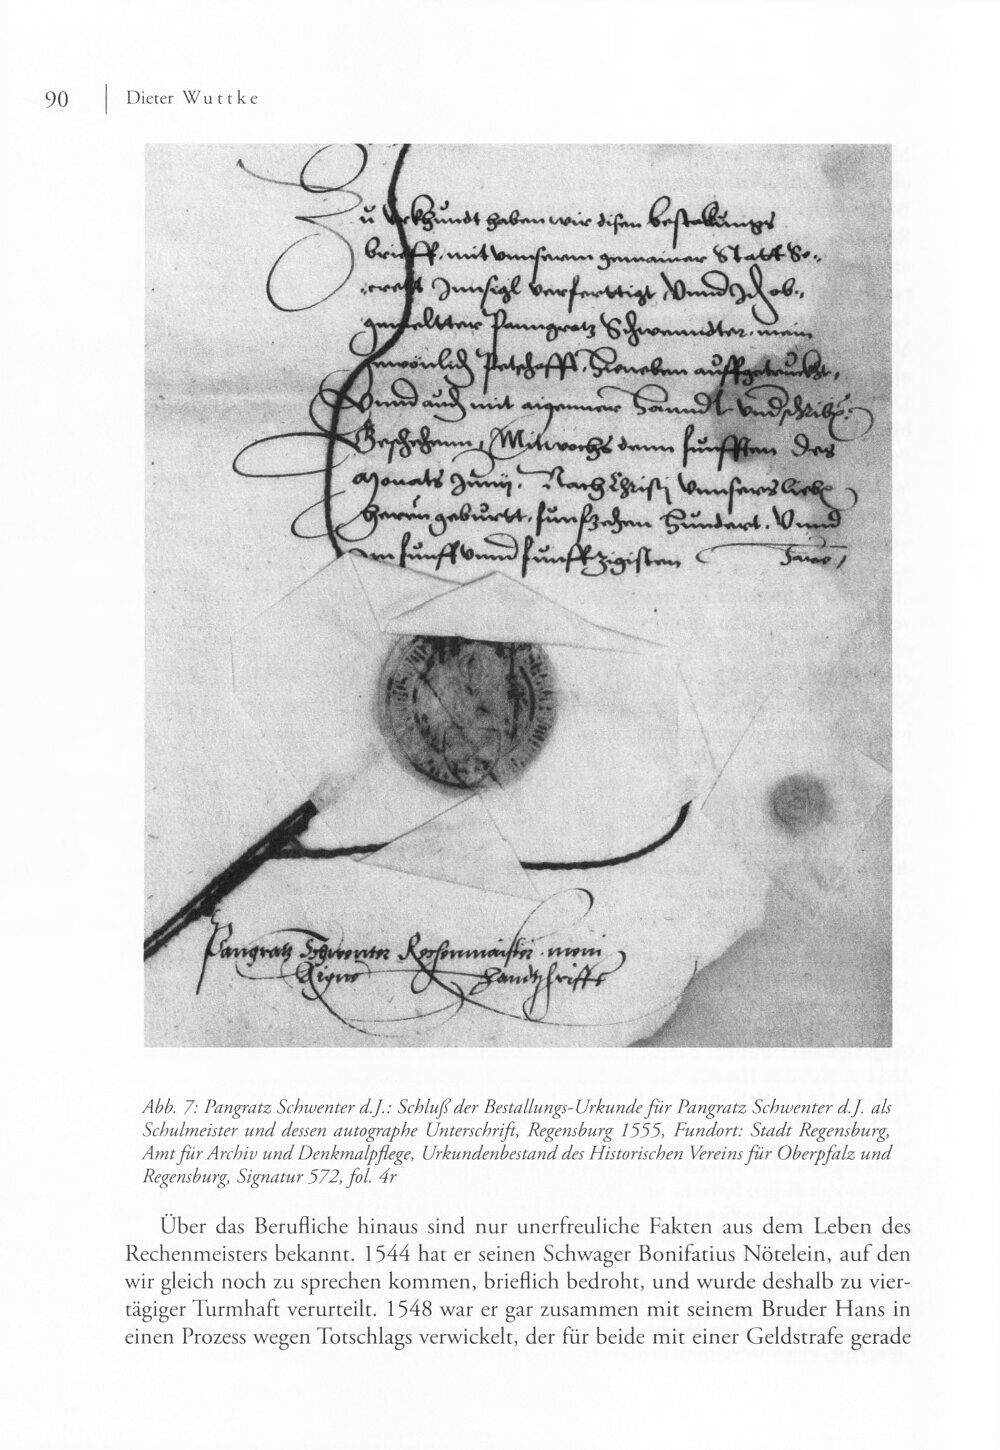 90
Dieter Wuttke
Zu Urkhundt haben wir disen bestallungs
brieff, mit vnnserm gemainer Statt Se-,,
,,crett Innsigl verferttigt, Vnnd Ich ob-,,
gemeltter Panngratz Schwenndter, mein
gewönlich Petschafft, Hieneben auffgetruckht,
Vnnd auch mit aigenner Hanndt vndschribn:
Geschehenn, Mitwochs denn funfften des
Monats Junij, Nach Christj vnnsers liebn
herrn geburtt, funfzehen Hundert, Vnnd
Im funff vnnd funffzigisten Jare,
Pangratz Schwenter Rechenmaister mein
Aigne Handtschrifft
Abb. 7: Pangratz Schwenter d.J.: Schluß der Bestallungs-Urkunde für Pangratz Schwenter d.J. als
Schulmeister und dessen autographe Unterschrift, Regensburg 1555, Fundort: Stadt Regensburg,
Amt für Archiv und Denkmalpflege, Urkundenbestand des Historischen Vereins für Oberpfalz und
Regensburg, Signatur 572, fol. 4r
Über das Berufliche hinaus sind nur unerfreuliche Fakten aus dem Leben des
Rechenmeisters bekannt. 1544 hat er seinen Schwager Bonifatius Nötelein, auf den
wir gleich noch zu sprechen kommen, brieflich bedroht, und wurde deshalb zu vier-
tägiger Turmhaft verurteilt. 1548 war er gar zusammen mit seinem Bruder Hans in
einen Prozess wegen Totschlags verwickelt, der für beide mit einer Geldstrafe gerade